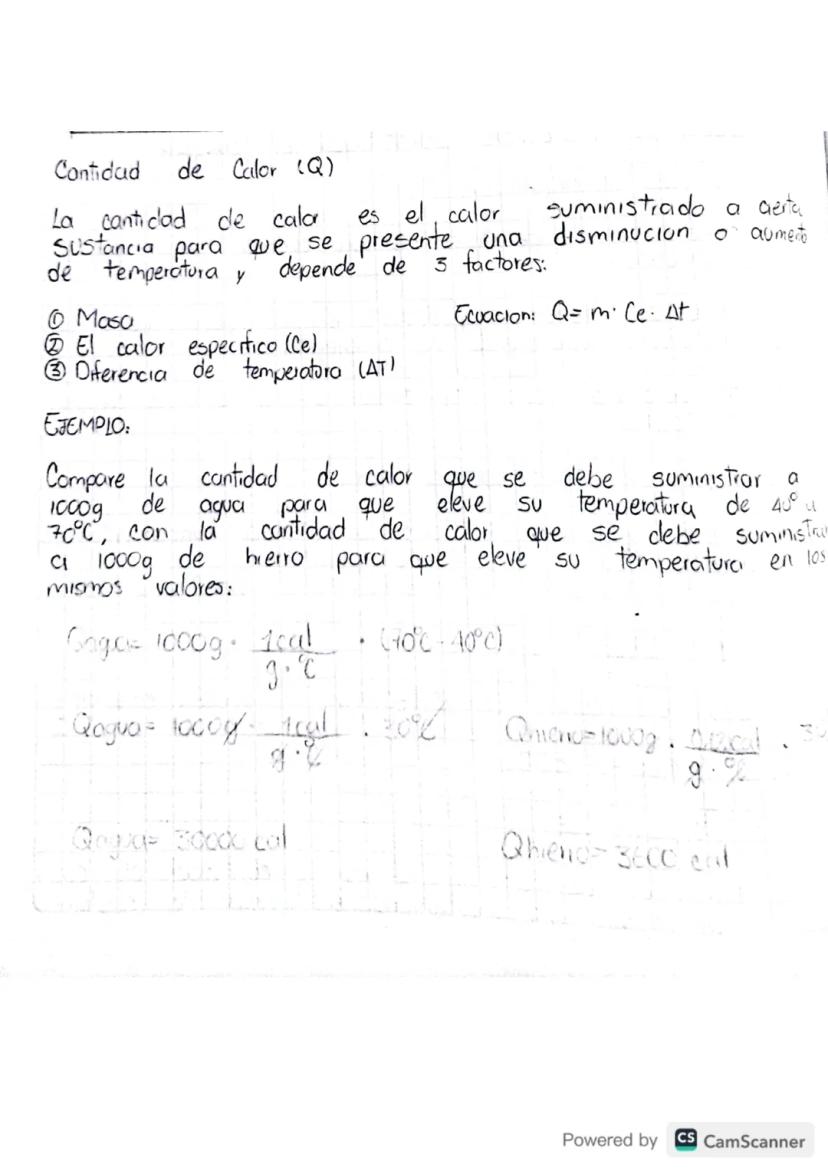 Cantidad de Calor (Q)
La cantidad de calor es el calor suministrado a cierta
sustancia para que se presente una disminucion o aumento
de temperatura y depende de 3 factores:
① Masa
Ecuacion: Q= m· Ce· Δt
② El calor especifico (Ce)
③ Diferencia de temperatura (ΔT)
EJEMPLO:
Compare la cantidad de calor que se debe suministrar a
1000g de agua para que eleve su temperatura de 40° a
70°C, con la cantidad de calor que se debe suministra
a 1000g de hierro para que eleve su temperatura en los
mismos valores:
Qagua= 1000g · 1cal / g·°C · (70°C - 40°C)
Qagua= 1000g · 1cal / g·°C · 30°C
Qhierro=1000g · 0,12cal / g·°C · 30
Qagua= 30000 cal
Qhierro= 3600 cal
Powered by CS CamScanner